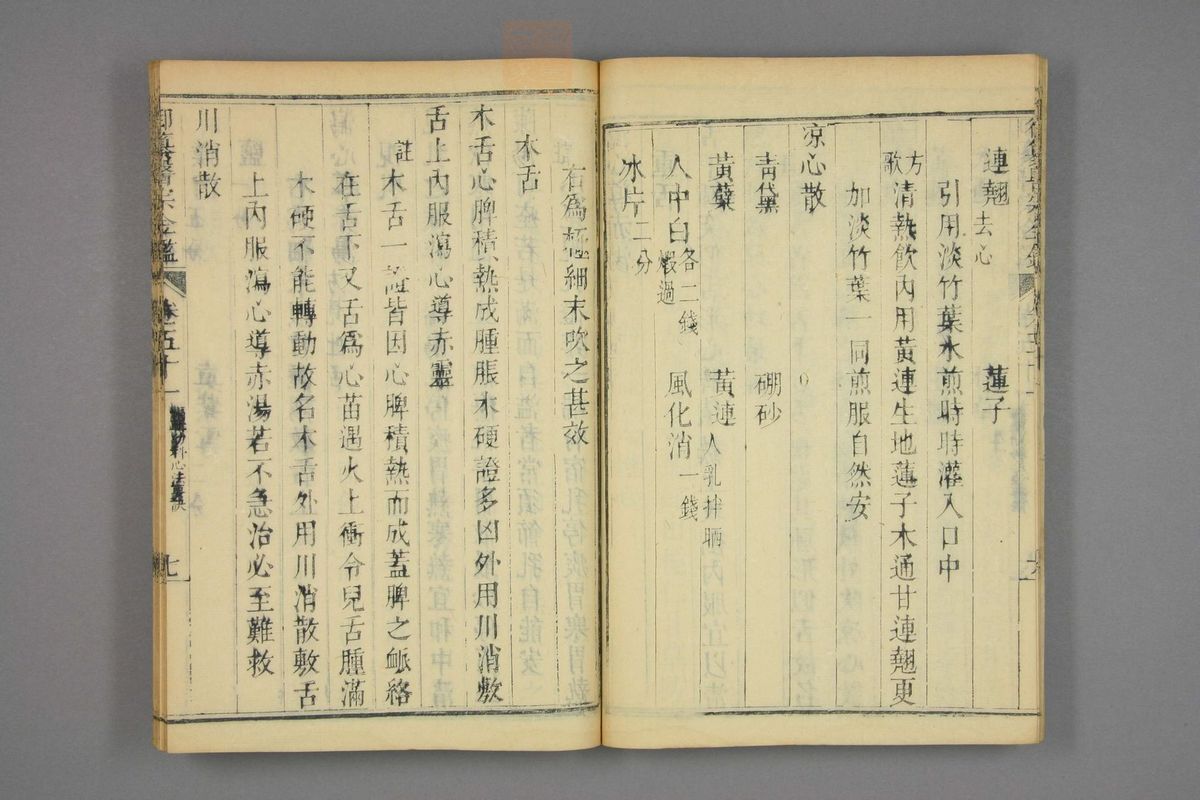 連翹去心 蓮子
引用淡竹葉水煎時時灌入口中
方歌 清熱飲內用黃連生地蓮子木通甘連翹更
加淡竹葉一同煎服自然安
凉心散
青黛 硼砂
黃蘗 黃連人乳拌晒
人中白各二錢煅過 風化消一錢
冰片二分
右為極細末吹之甚效
木舌
木舌心脾積熱成腫脹木硬證多凶外用川消敷
舌上內服瀉心導赤靈
註 木舌一證皆因心脾積熱而成蓋脾之絡
在舌下又舌為心苗遇火上衝令兒舌腫滿
木硬不能轉動故名木舌外用川消散敷舌
上內服瀉心導赤湯若不急治必至難救
川消散
御纂醫宗金鑑 卷五十一 七